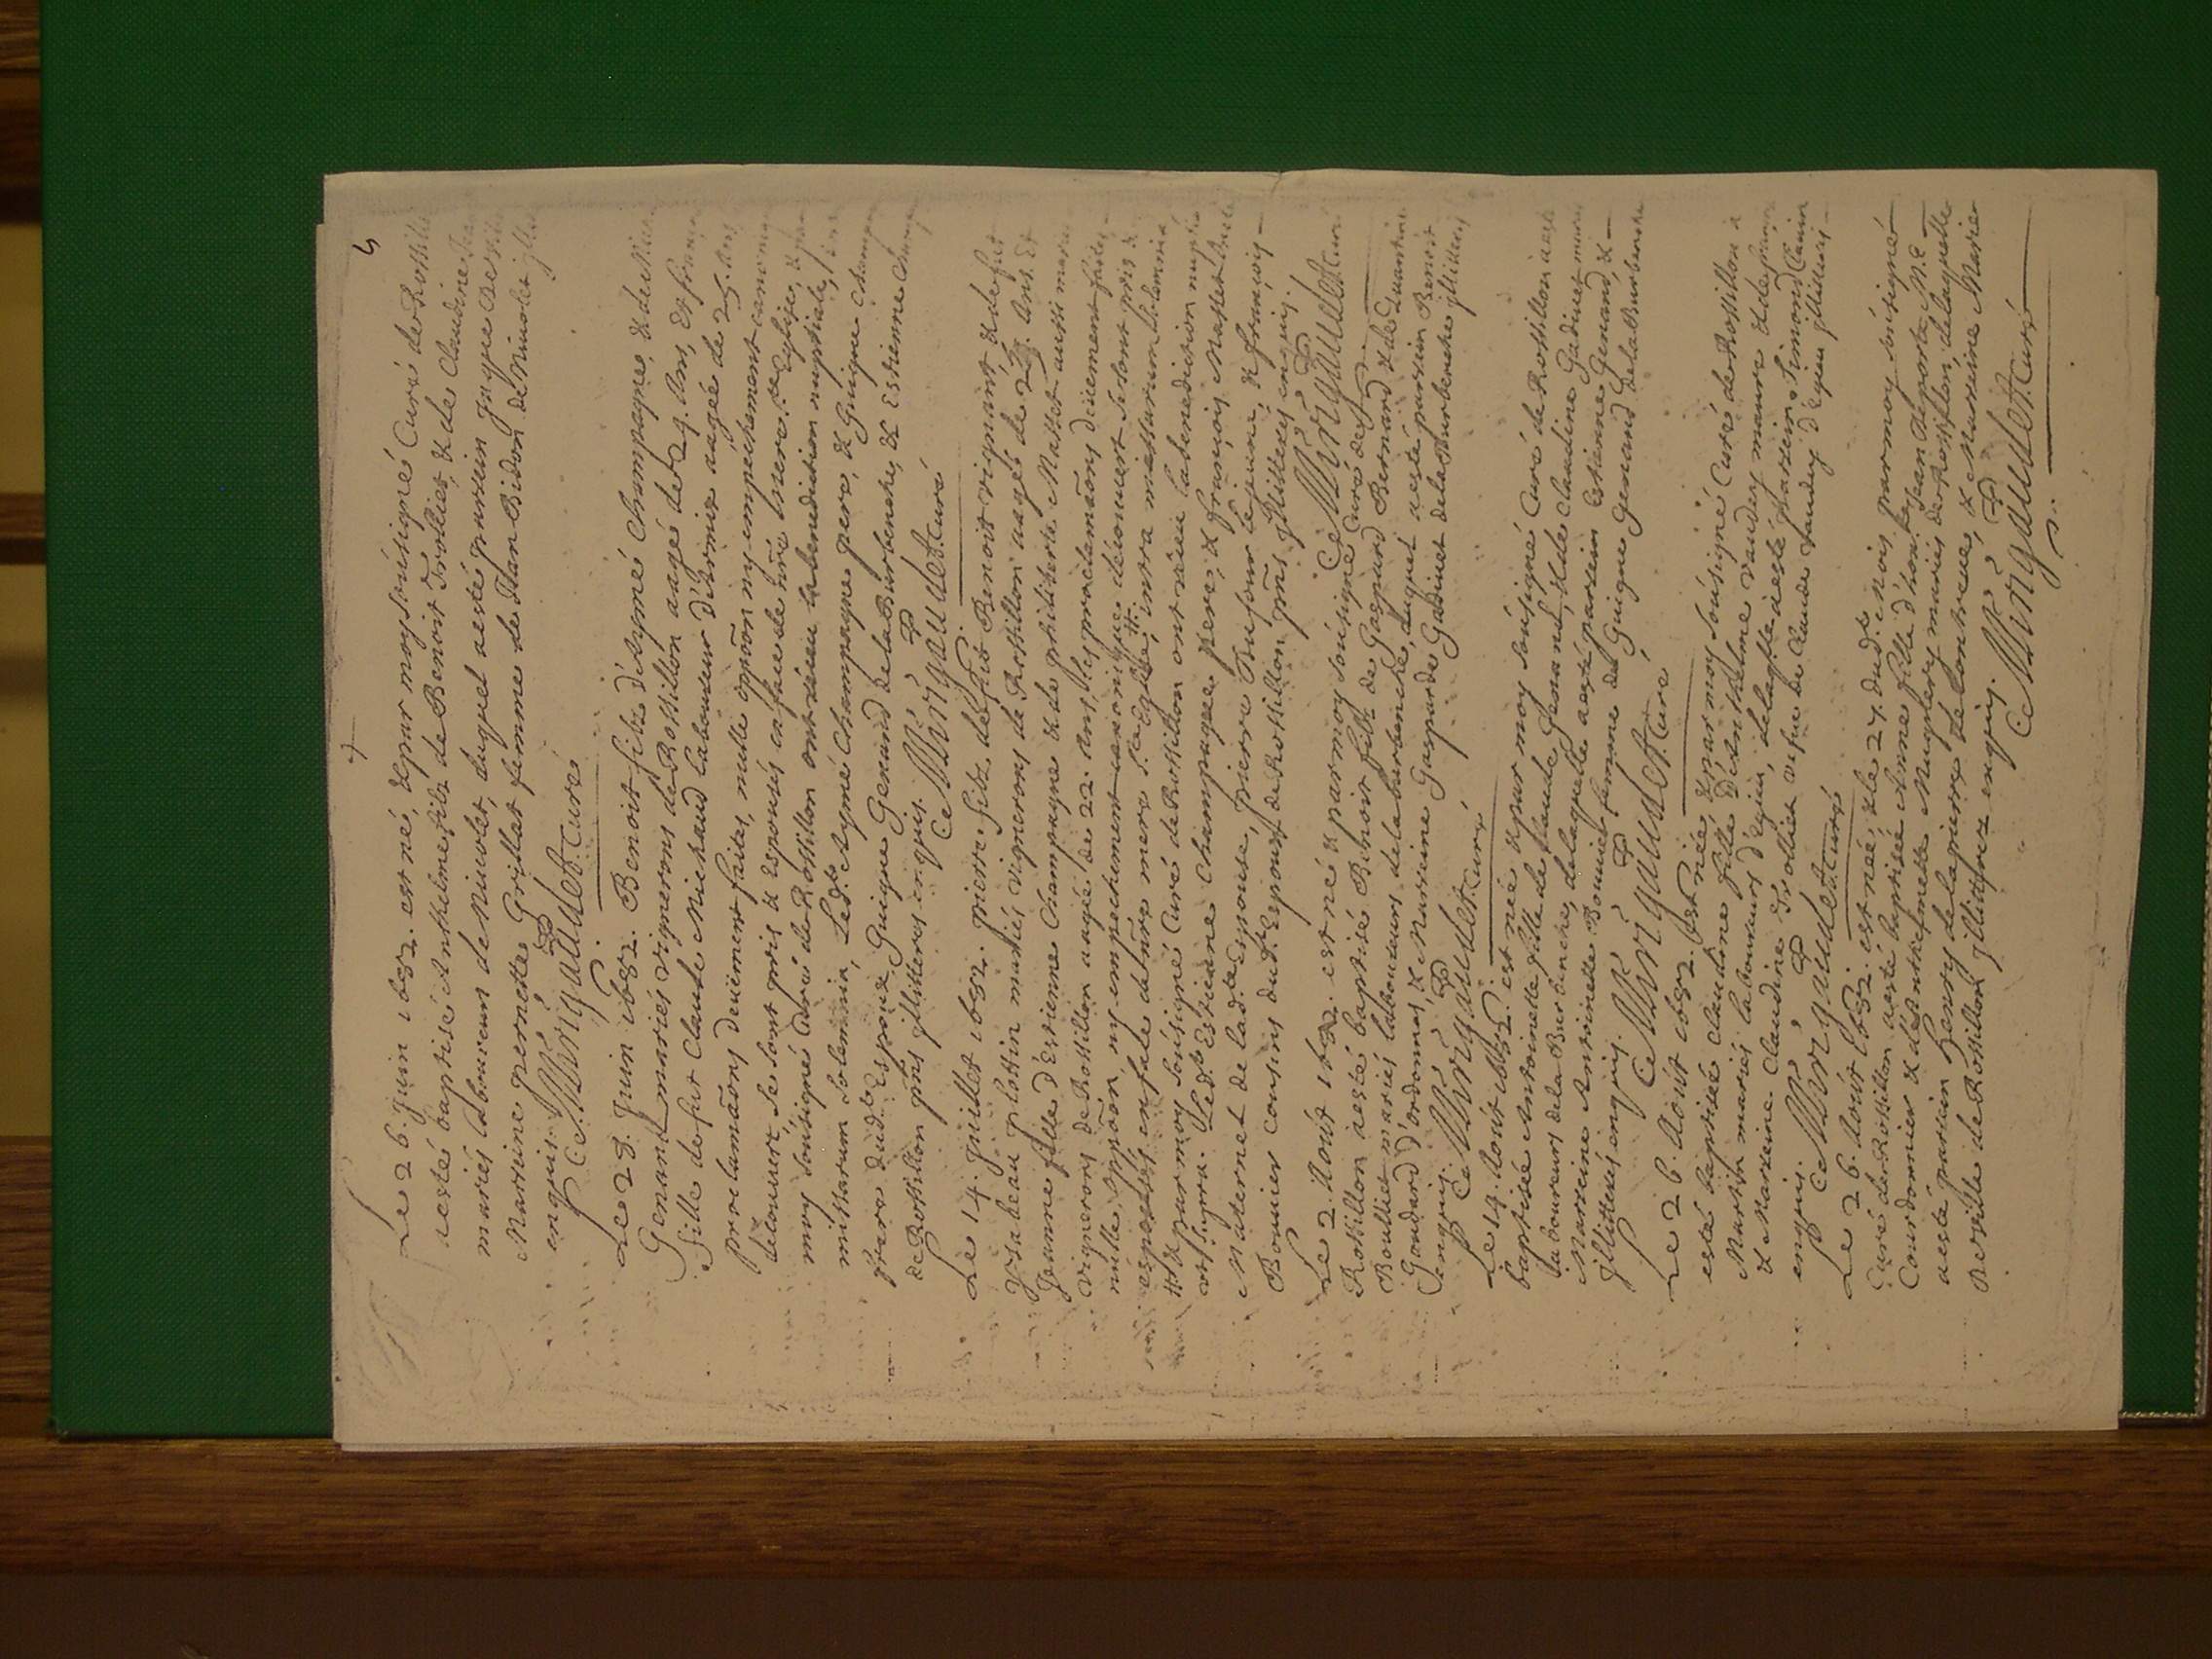 5
Le 26. Juin 1682. est né, & par moy soûsigné Curé de Rossillon
a esté baptisé Anthelme filz de Benoit Trollier, & de Claudine
mariés laboureurs de Nivolet, duquel a esté parrein Jaque
Marreine pernette Grillat femme de Jean Bidon de Nivolet
enquis.
C. Mùrigaudet. Curé
Le 28. Juin 1682. Benoit filz d'Aymé Champagne, & de
Genand mariés vignerons de Rossillon aagé de 24. Ans, Et
fille de fut Claude Michaud laboureur d'Armix aagée de 25. Ans
proclamaõns deüement faites, nulle oppõon ny empeschement canonique
découvert, se sont pris & espousés en face de nr̃e mere Ste Eglise, &
moy soûsigné Curé de Rossillon ont réceu la benediction nuptiale,
missarum solemnia, Led.t Aymé Champagne pere, & Guigue Champagne
frere dud.t Espoux, Guigue Genand de la Burbenche, & Estienne
de Rossillon pñs illitteres enquis.
C. Mùrigaudet. Curé
Le 14. Juillet 1682. pierre filz de fut Benoit vignant & de fut
Ysabeau plottin mariés vignerons de Rossillon aagé de Ans. Et
Jeanne fille d'Estienne Champagne & de philiberte Masset aussi mariés
vignerons de Rossillon aagée de 22. Ans, les proclamaõns deüement faites
nulle oppõon, ny empeschement canonique découvert se sont pris &
espousés en face de nr̃e mere Ste Eglise, # intra missarum solemnia
# & par moy soûsigné Curé de Rossillon ont réceu la benediction nuptiale
ut supra. Led.t Estienne Champagne pere, & François Masset
Maternel de lad.te Espouse, pierre Dufour le jeune, & François
Bouvier cousins dud.t Espoux de Rossillon pñs illitterés enquis.
C. Mùrigaudet. Curé
Le 2. Aoút 1682. est né & par moy soûsigné Curé de
Rossillon a esté baptisé Benoit filz de Gaspard Bernard & de
Boulliet mariés laboureurs de la burbenche, duquel a esté parrein Benoit
Goudard d'ordonnas, & Marreine Gasparde Gadinet de la Burbenche illitterés
enquis.
C. Mùrigaudet. Curé
Le 19. Aoút 1682. est née & par moy soûsigné Curé de Rossillon a esté
baptisée Antoinette fille de Claude Genand, & de Claudine Gadinet mariés
laboureurs de la Burbenche, de laquelle a esté parrein Estienne Genand, &
Marreine Antoinette Bouvier femme de Guigue Genand de la Burbenche
illitterés enquis.
C. Mùrigaudet. Curé
Le 26. Aoút 1682. est née, & par moy soûsigné Curé de Rossillon a
esté baptisée Claudine fille d'Anthelme vaudey maure & de
Martin mariés laboureurs d'Egieu, de laq.lle a esté parrein Simond
& Marreine Claudine Trollier vefve de Claude vaudey d'Egieu illitterés
enquis.
C. Mùrigaudet. Curé
Le 26. Aoút 1682. est née, & le 27. dud.t Mois par moy soûsigné
Curé de Rossillon a esté baptisée Anne fille d'hon. Jean deporte M.e
Courdonnier & d'Anthelmette Mugniery mariés de Rossillon, de laquelle
a esté parrein Henry de la pierre de Contrevoz, & Marreine Marie
de Rossillon illitterez enquis.
C. Mùrigaudet. Curé